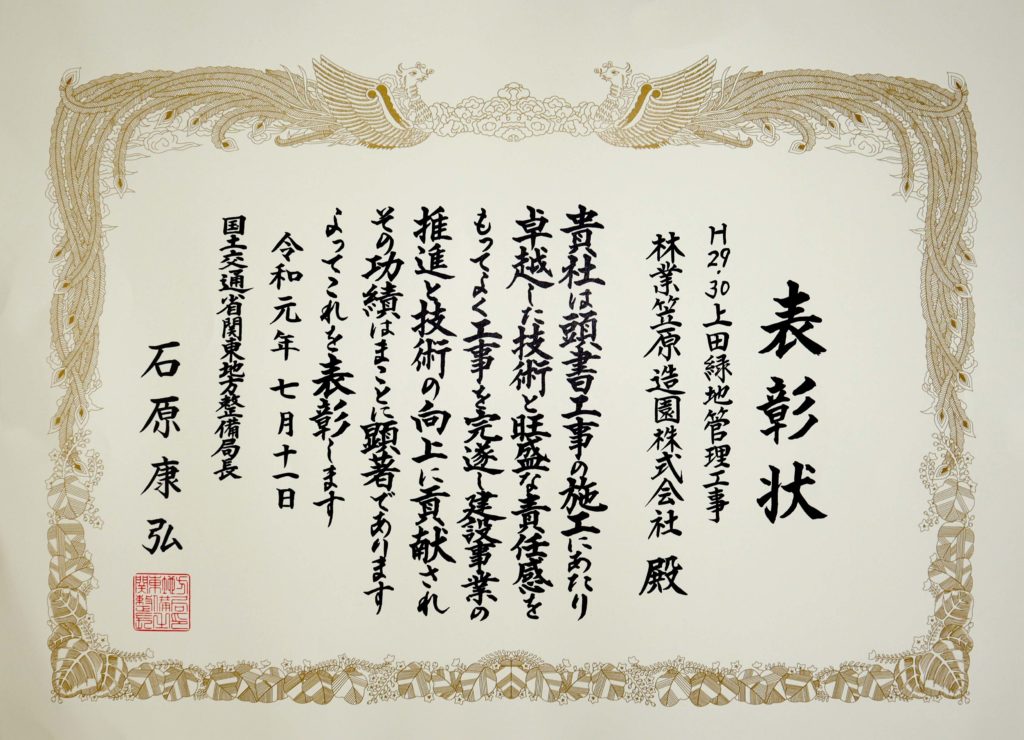 表彰状
H29.30上田緑地管理工事
林業笠原造園株式会社 殿
貴社は頭書工事の施工にあたり
卓越した技術と旺盛な責任感を
もってよく工事を完遂し建設事業の
推進と技術の向上に貢献され
その功績はまことに顕著であります
よってこれを表彰します
令和元年七月十一日
国土交通省関東地方整備局長
石原康弘